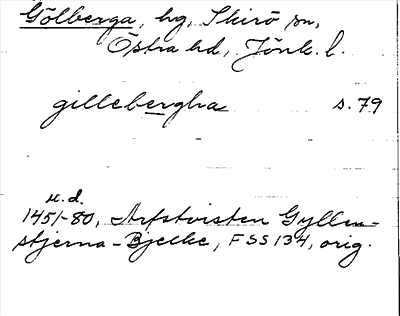 Gölberga, hg, Skirö sn,
Östra hd, Jönk. l.
gillebergha s. 79
u.d.
1451-80, Arfstvisten Gyllen-
stjerna-Bjelke, FSS 134, orig.